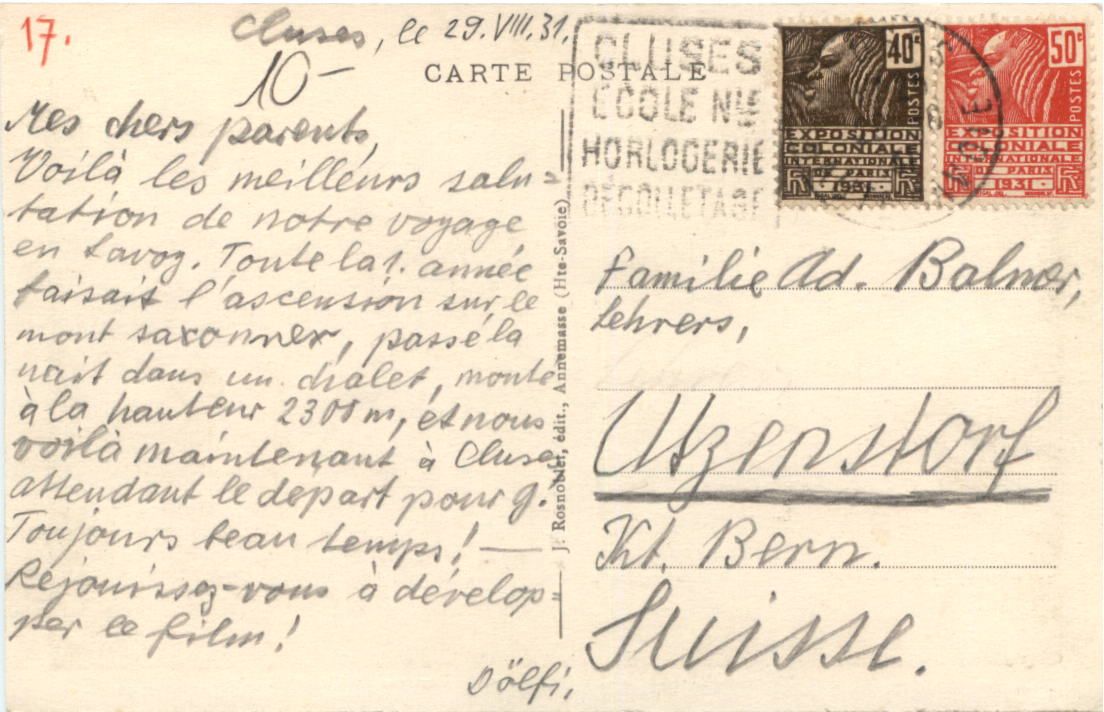 17.
Cluses, le 29.VIII.31.
10-
CARTE POSTALE
CLUSES
ECOLE Nle
HORLOGERIE
DECOLLETAGE
40c
POSTES
EXPOSITION
COLONIALE
INTERNATIONALE
DE PARIS
1931
50c
POSTES
EXPOSITION
COLONIALE
INTERNATIONALE
DE PARIS
1931
Mes chers parents,
Voilà les meilleurs salu=
tation de notre voyage
en Savoy. Toute la 1. année
faisait l'ascension sur le
mont saxonnex, passé la
nuit dans un chalet, monté
à la hauteur 2300 m, et nous
voilà maintenant à Cluses
attendant le depart pour g.
Toujours beau temps! —
Rejouissez-vous à dévelop=
per le film!
Dölfi,
J. Rosnoblet, édit., Annemasse (Hte-Savoie)
Familie Ad. Balmer,
Lehrers,
Utzenstorf
Kt. Bern.
Suisse.